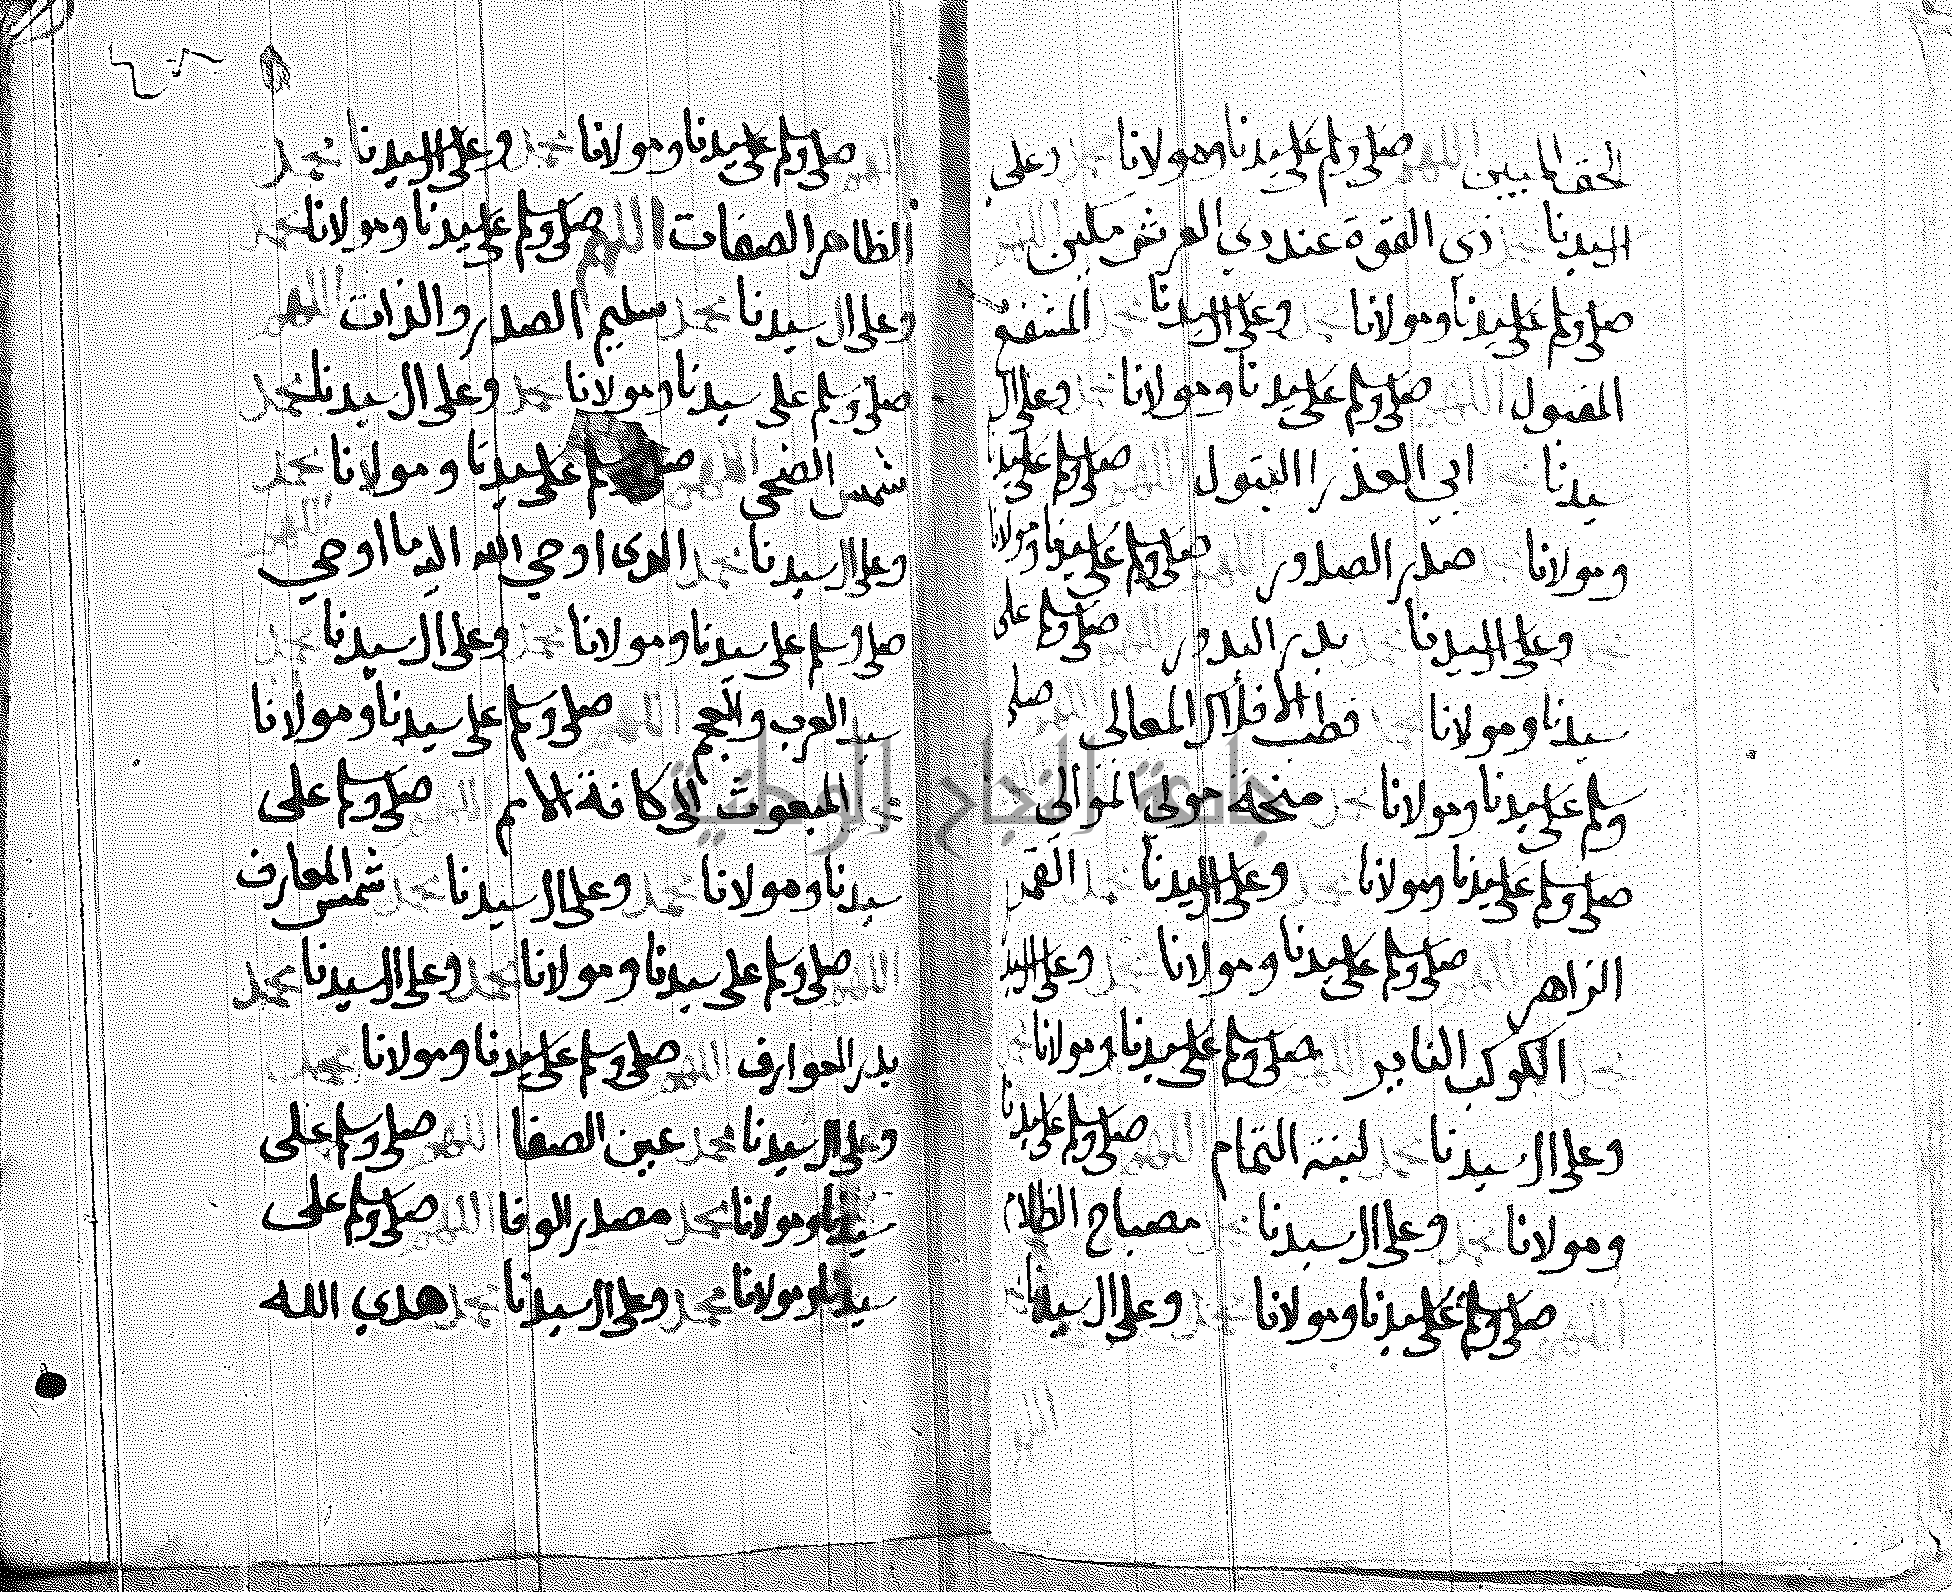 الحق المبين اللهم صل وسلم على سيدنا ومولانا محمد وعلى
ال سيدنا محمد ذي القوة عند ذي العرش مكين اللهم
صل وسلم على سيدنا ومولانا محمد وعلى ال سيدنا محمد المشفع
المقبول اللهم صل وسلم على سيدنا ومولانا محمد وعلى ال
سيدنا ابي العذرا البتول اللهم صل وسلم على سيدنا
ومولانا صدر الصدور اللهم صل وسلم على سيدنا ومولانا
محمد وعلى ال سيدنا محمد بدر البدور اللهم صل وسلم على
سيدنا ومولانا محمد قطب الافلاك المعالى اللهم صلى
وسلم على سيدنا ومولانا محمد منحة مولي الموالي
صل وسلم على سيدنا ومولانا محمد وعلى ال سيدنا محمد القمر
الزاهر اللهم صل وسلم على سيدنا ومولانا محمد وعلى ال سيدنا
محمد الكوكب الناير اللهم صل وسلم على سيدنا ومولانا محمد
وعلى ال سيدنا محمد لبنة التمام اللهم صل وسلم على سيدنا
ومولانا محمد وعلى ال سيدنا محمد مصباح الظلام
اللهم صل وسلم على سيدنا ومولانا محمد وعلى ال سيدنا محمد
اللهم صل وسلم على سيدنا ومولانا محمد وعلى ال سيدنا محمد
الظاهر الصفات اللهم صل وسلم على سيدنا ومولانا محمد
وعلى ال سيدنا محمد سليم الصدر والذات اللهم
صل وسلم على سيدنا ومولانا محمد وعلى ال سيدنا محمد
شمس الضحى اللهم صل وسلم على سيدنا ومولانا محمد
وعلى ال سيدنا محمد الذى اوحي الله اليه ما اوحي اللهم
صل وسلم على سيدنا ومولانا محمد وعلى ال سيدنا محمد
سيد العرب والعجم اللهم صل وسلم على سيدنا ومولانا
محمد المبعوث الى كافة الامم اللهم صل وسلم على
سيدنا ومولانا محمد وعلى ال سيدنا محمد شمس المعارف
اللهم صل وسلم على سيدنا ومولانا محمد وعلى ال سيدنا محمد
بدر العوارف اللهم صل وسلم على سيدنا ومولانا محمد
وعلى ال سيدنا محمد عين الصفا اللهم صل وسلم على
سيدنا ومولانا محمد مصدر الوفا اللهم صل وسلم على
سيدنا ومولانا محمد وعلى ال سيدنا محمد هدي الله
جامعة النجاح الوطنية